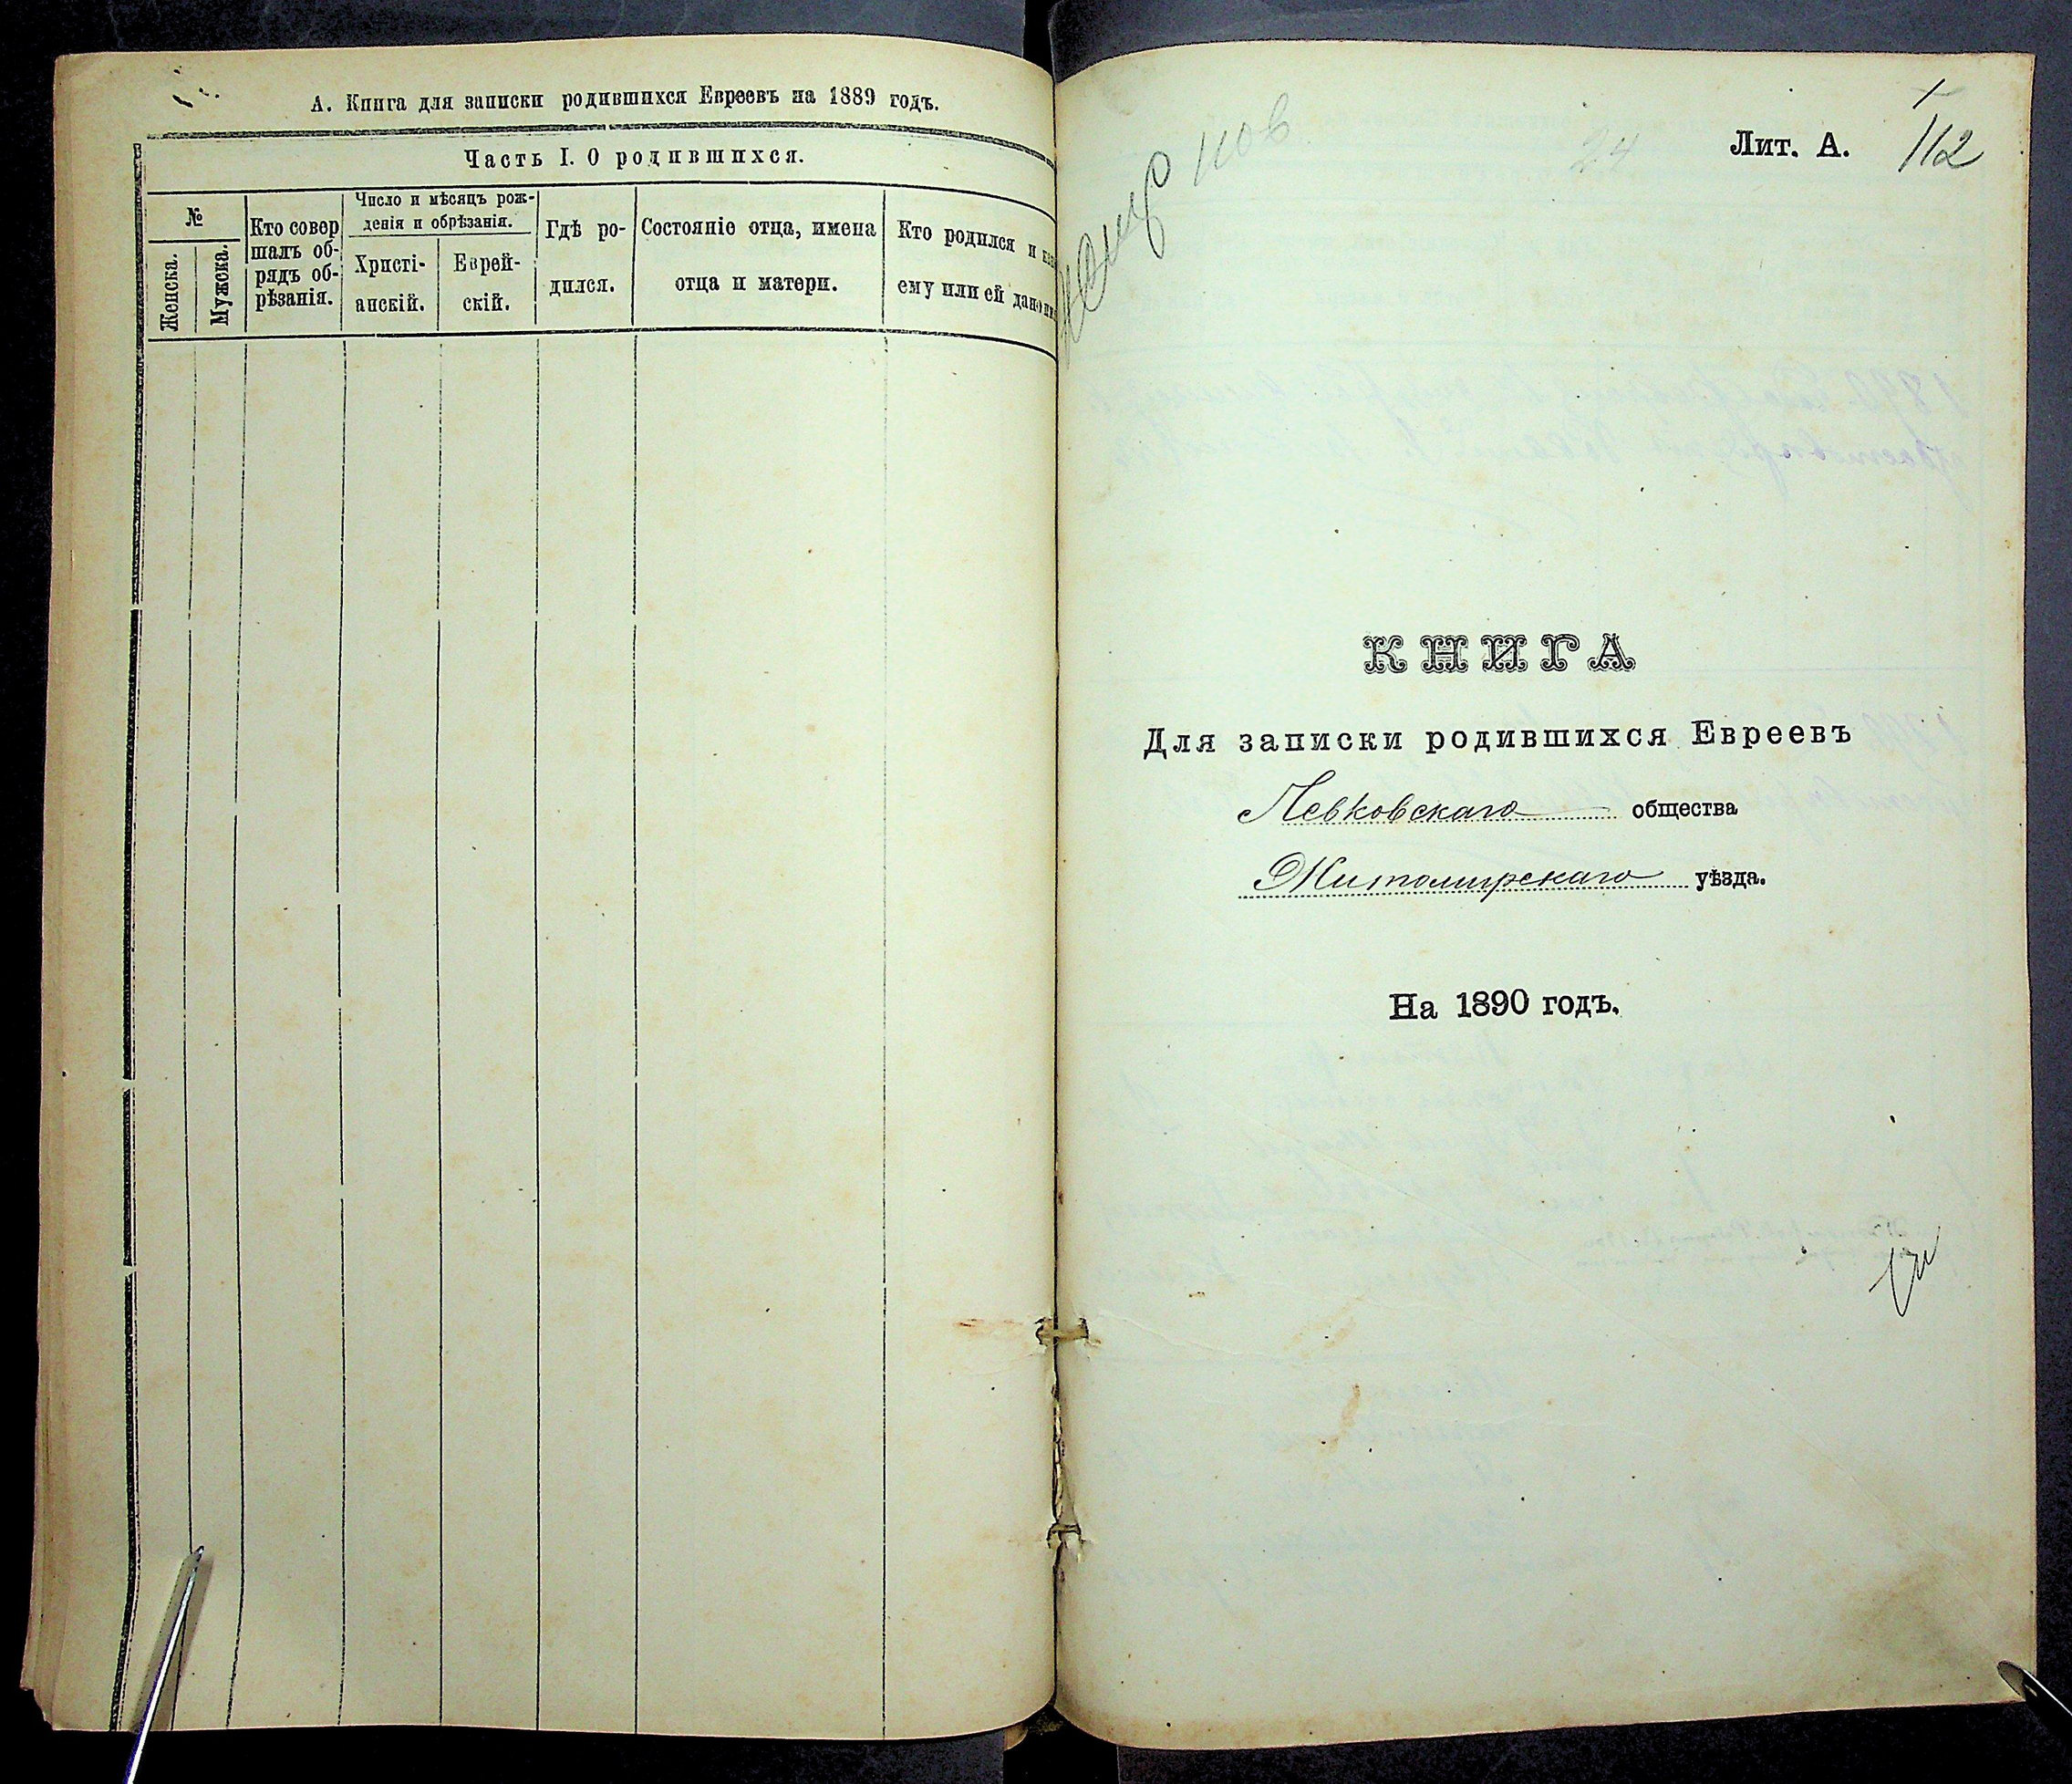 А. Книга для записки родившихся Евреевъ на 1889 годъ.
Часть I. О родившихся.
№
Женска.
Мужска.
Кто совер
шалъ об-
рядъ об-
рѣзанія.
Число и мѣсяцъ рож-
денія и обрѣзанія.
Христі-
анскій.
Еврей-
скій.
Гдѣ ро-
дился.
Состояніе отца, имена
отца и матери.
Кто родился и как
ему или ей дано им
Лит. А.
112
24
КНИГА
Для записки родившихся Евреевъ
Левковскаго общества
Житомирскаго уѣзда.
На 1890 годъ.